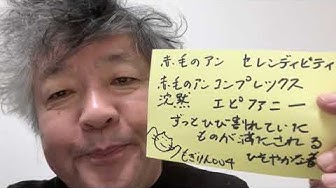 赤毛のアン セレンディピティ
赤毛のアンコンプレックス
沈黙 エピファニー
ずっとひび割れていた
ものが満たされる
ひそやかな喜
もぎりん004